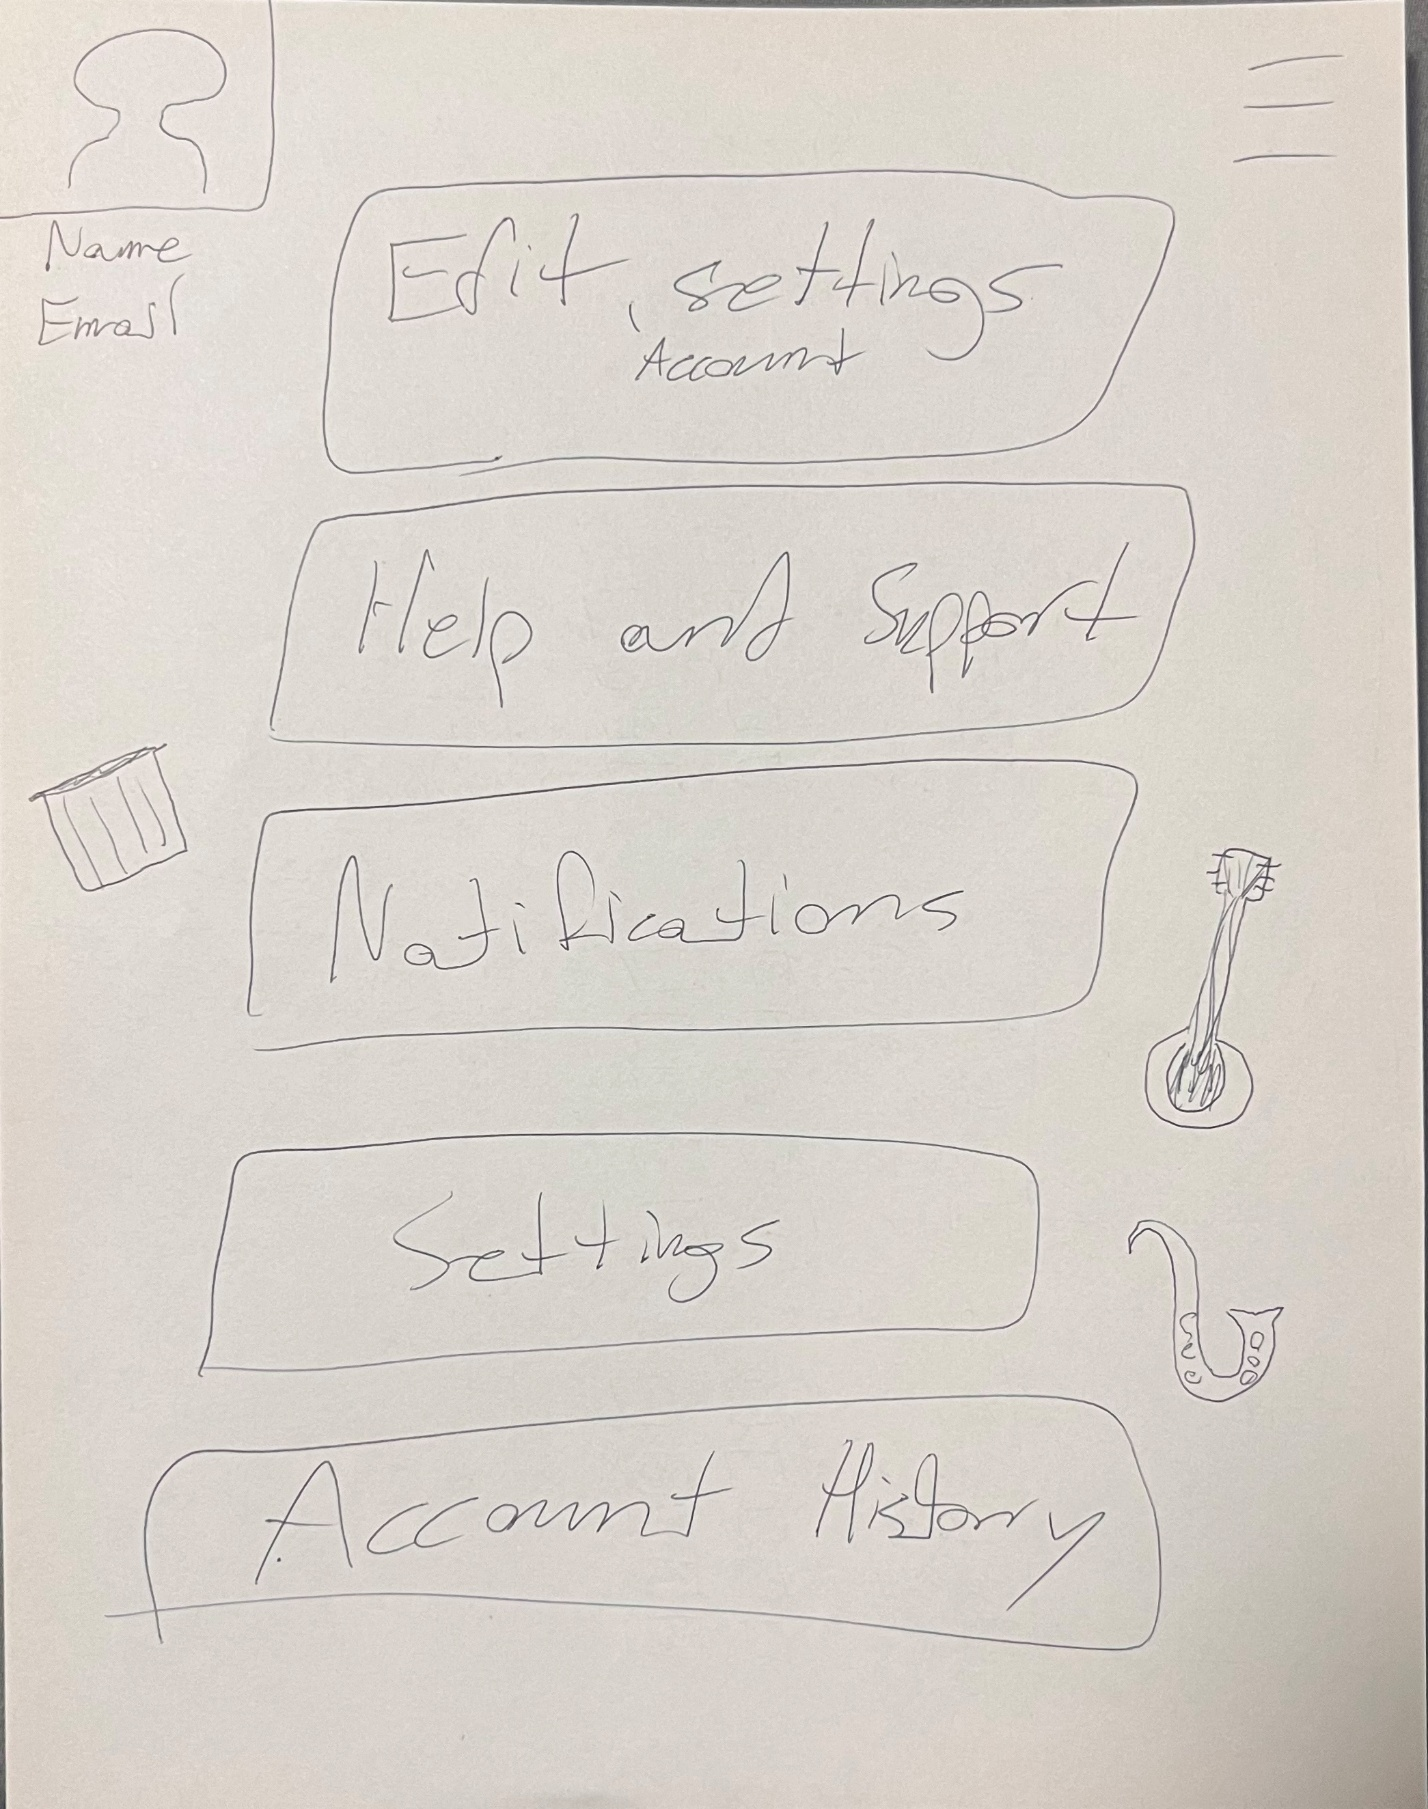 Name
Email
Edit, settings
Account
Help and Support
Notifications
Settings
Account History